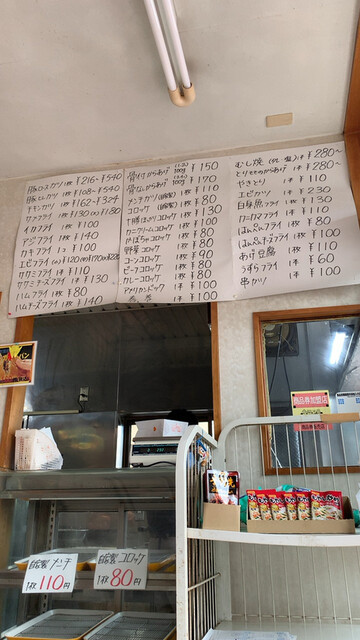 豚ロースカツ 1枚 ¥216~¥540
豚ヒレカツ 1枚 ¥108~¥540
チキンカツ 1枚 ¥162~¥324
イカフライ 1枚 ¥100
アジフライ 1枚 ¥140
カキフライ 1コ ¥100
ササミフライ 1本 ¥110
ササミチーズフライ 1本 ¥130
ハムフライ 1枚 ¥80
ハムチーズフライ 1枚 ¥140
骨付からあげ 100g ¥150
骨なしからあげ 100g ¥170
メンチカツ(自家製) 1枚 ¥110
コロッケ (自家製) 1枚 ¥80
十勝ほがじコロッケ 1枚 ¥130
カニクリームコロッケ 1枚 ¥100
かぼちゃコロッケ 1枚 ¥80
野菜コロッケ 1枚 ¥80
コーンコロッケ 1枚 ¥90
ビーフコロッケ 1枚 ¥80
カレーコロッケ 1枚 ¥80
アメリカンドック 1本 ¥100
春巻 1本 ¥100
むし焼 (タレ 塩) 1本 ¥280~
とりもものからあげ 1本 ¥280~
やきとり 1本 ¥110
エビカツ 1枚 ¥230
白身魚フライ 1枚 ¥130
カニカマフライ 1本 ¥110
はんぺんフライ 1枚 ¥80
はんぺんチーズフライ 1枚 ¥100
あげ豆腐 1枚 ¥110
うずらフライ 1本 ¥60
串カツ 1本 ¥100
パン
商品券加盟店
自家製 メンチ
1枚 110円
自家製 コロッケ
1枚 80円